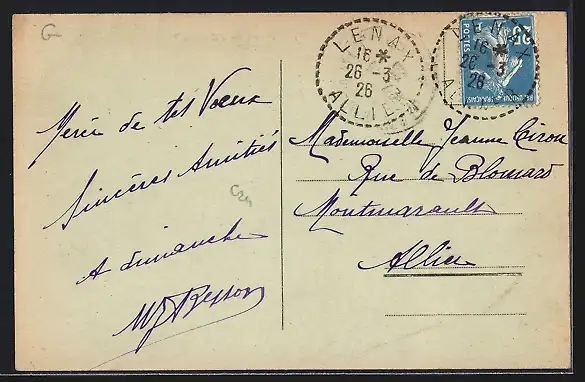 G
LENAX
16 *
26 - 3
26
ALLIER
LENAX
16 *
26 - 3
26
ALLIER
25c
POSTES
REPUBLIQUE FRANÇAISE
Merci de tes Voeux
Sincères Amitiés
A dimanche
MJ Besson
Mademoiselle Jeanne Ciron
Rue de Blomard
Montmarault
Allier